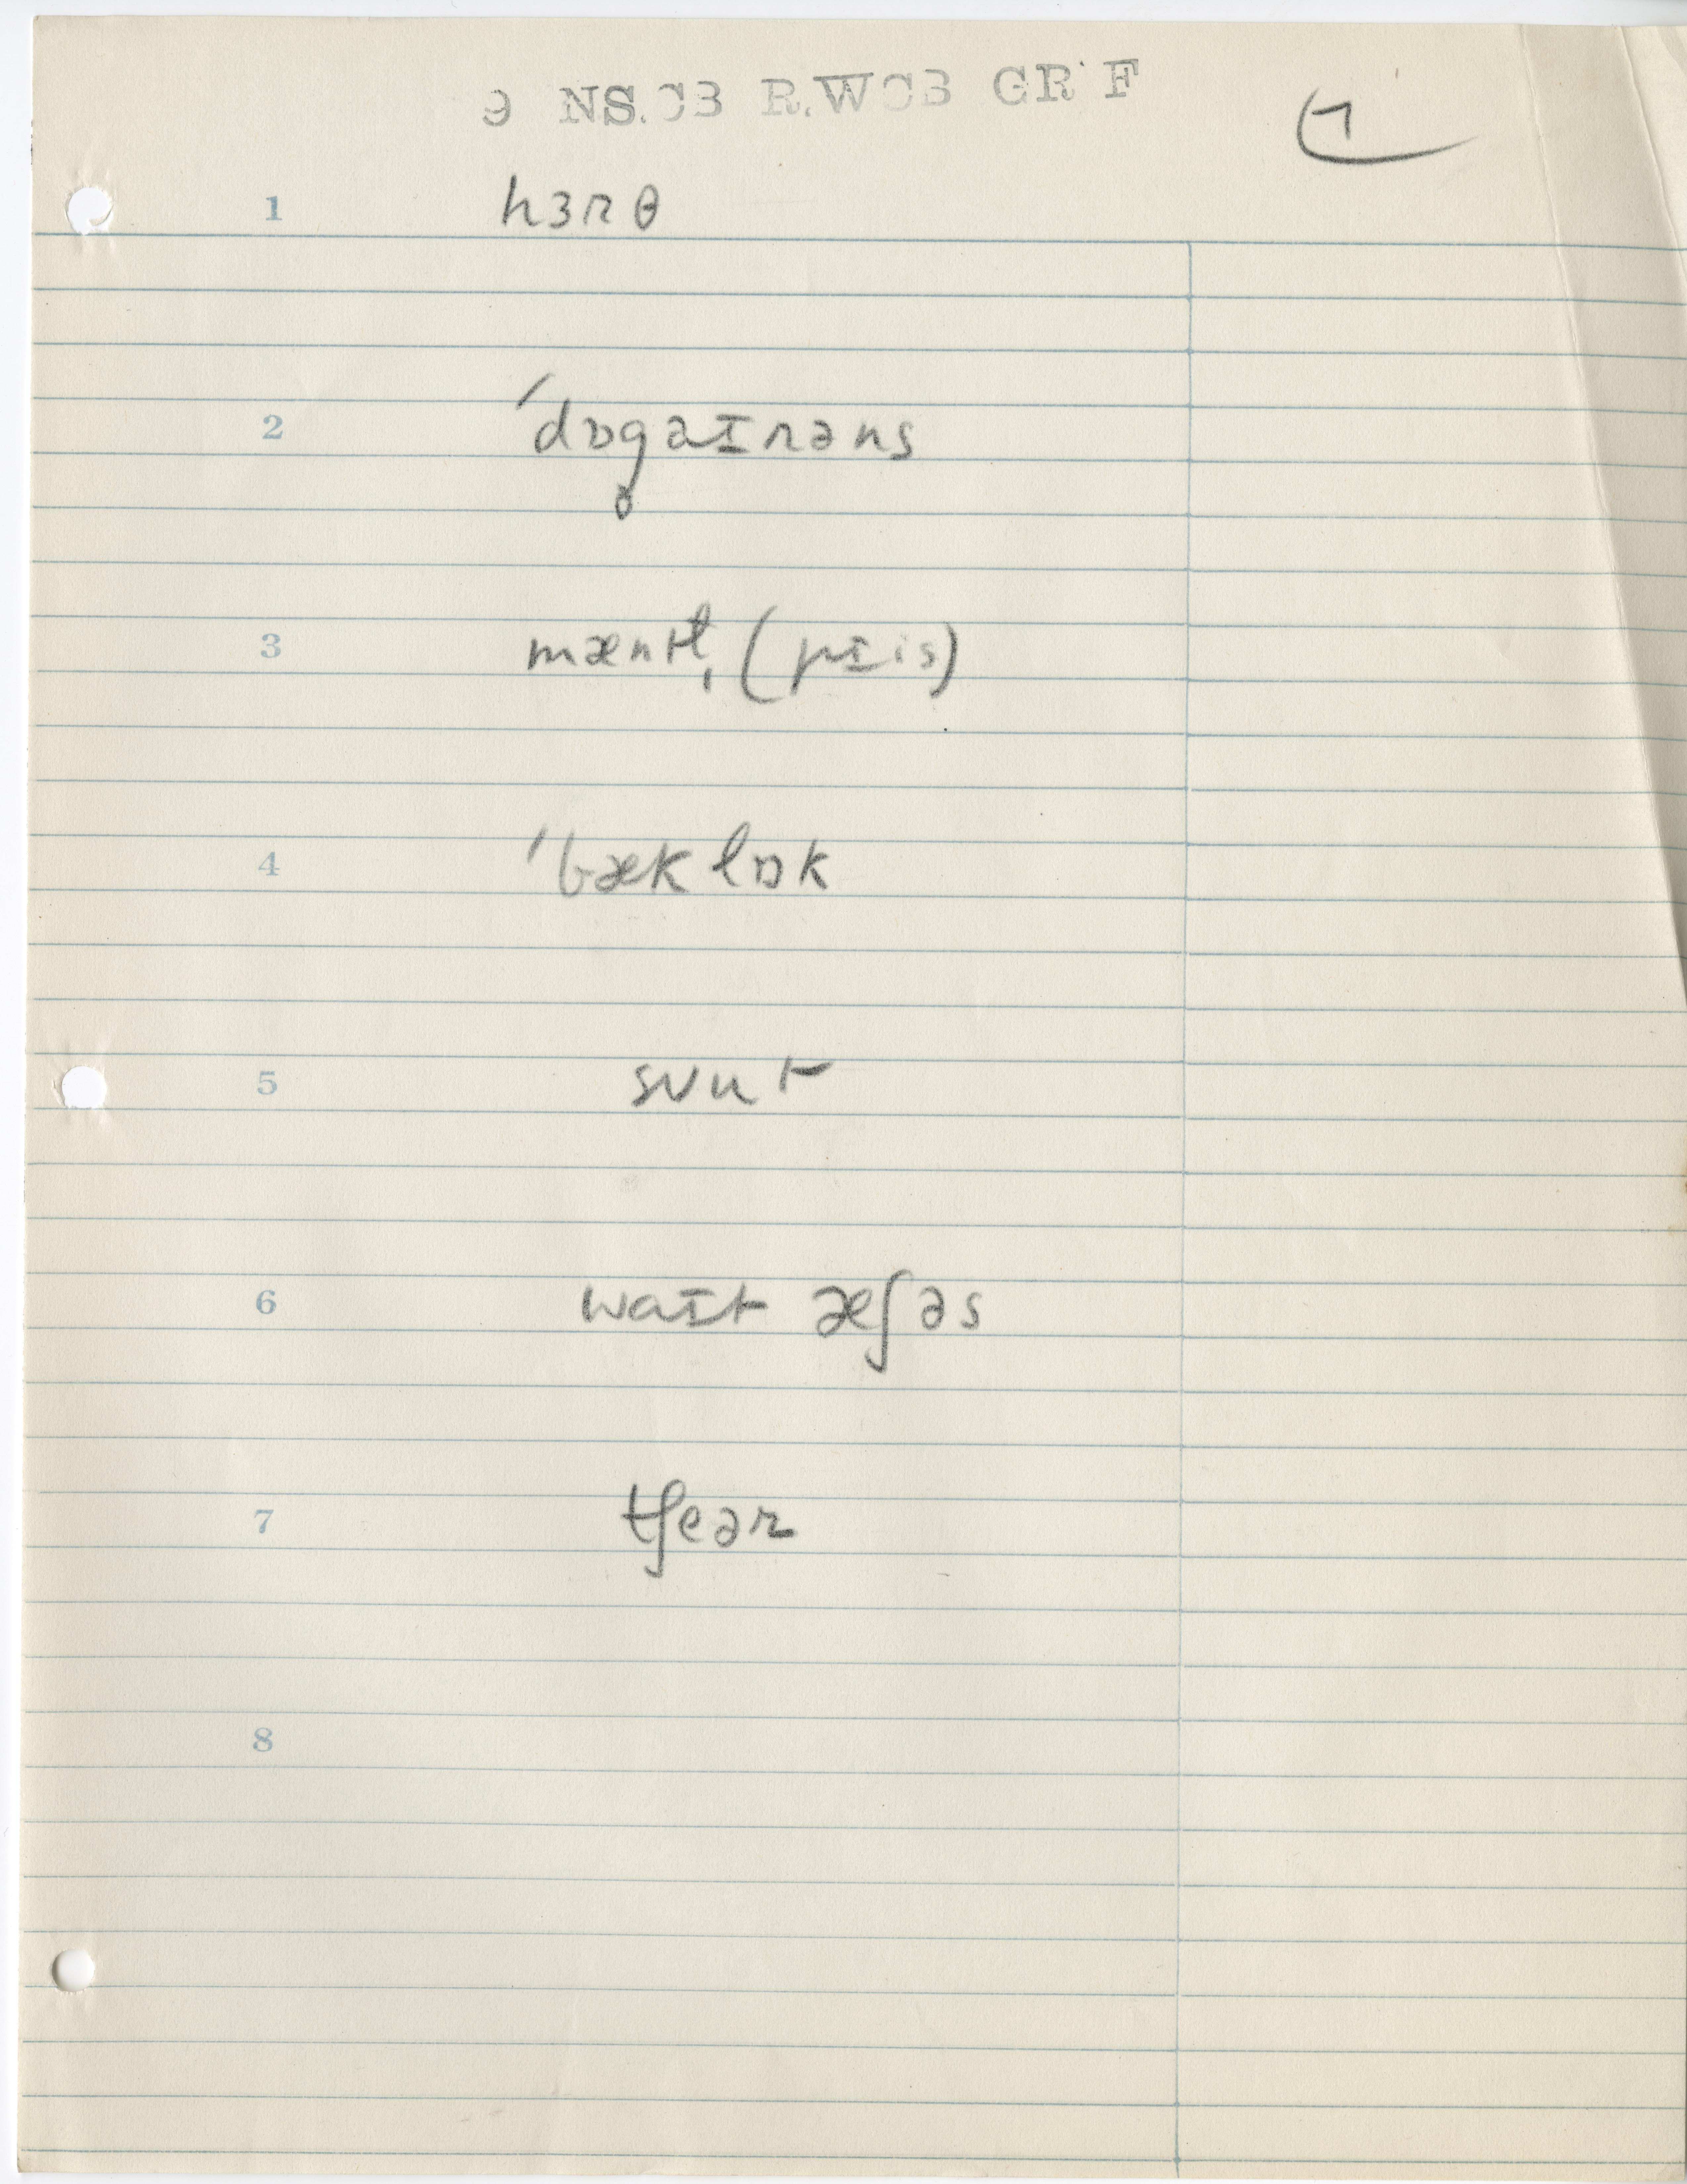 9 NS.CB R.WCB GR F
7
1 hɜrθ
2 ˈdɒg̥aɪrəns
3 mæntl̩ (pɪis)
4 ˈbæk lɒk
5 sʊut
6 waɪt æʃəs
7 tʃeər
8